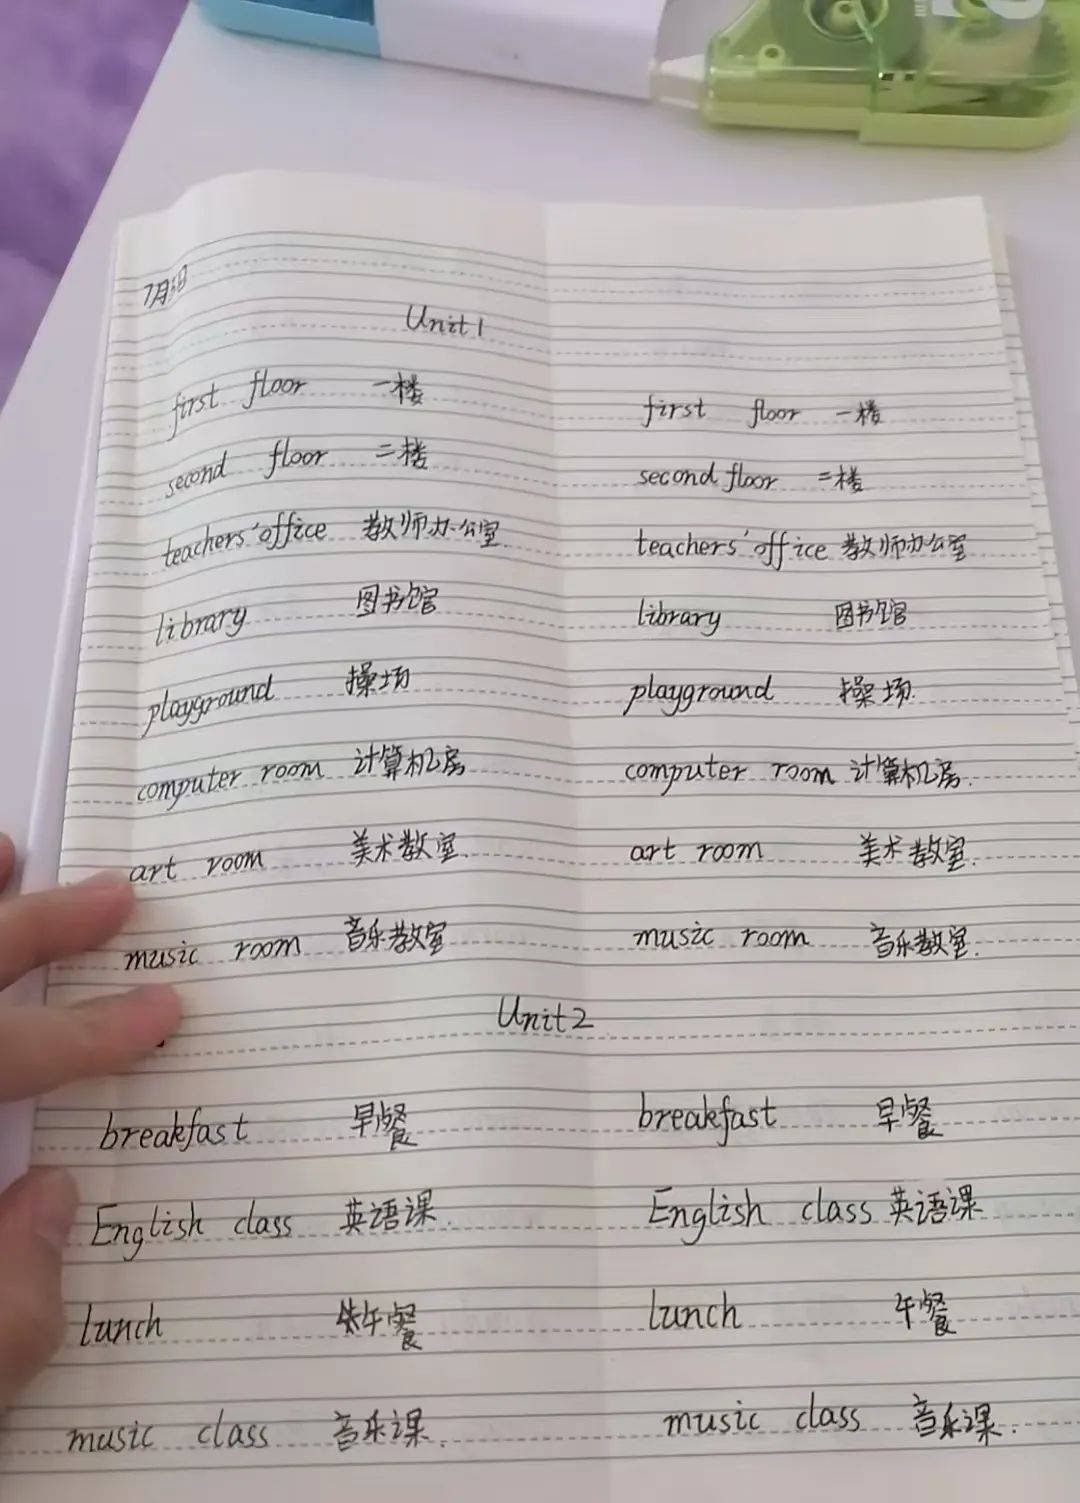 7月3日
Unit 1
first floor 一楼 first floor 一楼
second floor 二楼 second floor 二楼
teachers' office 教师办公室 teachers' office 教师办公室
library 图书馆 library 图书馆
playground 操场 playground 操场.
computer room 计算机房 computer room 计算机房.
art room 美术教室. art room 美术教室.
music room 音乐教室 music room 音乐教室.
Unit 2
breakfast 早餐 breakfast 早餐
English class 英语课. English class 英语课
lunch 午餐 lunch 午餐
music class 音乐课. music class 音乐课.